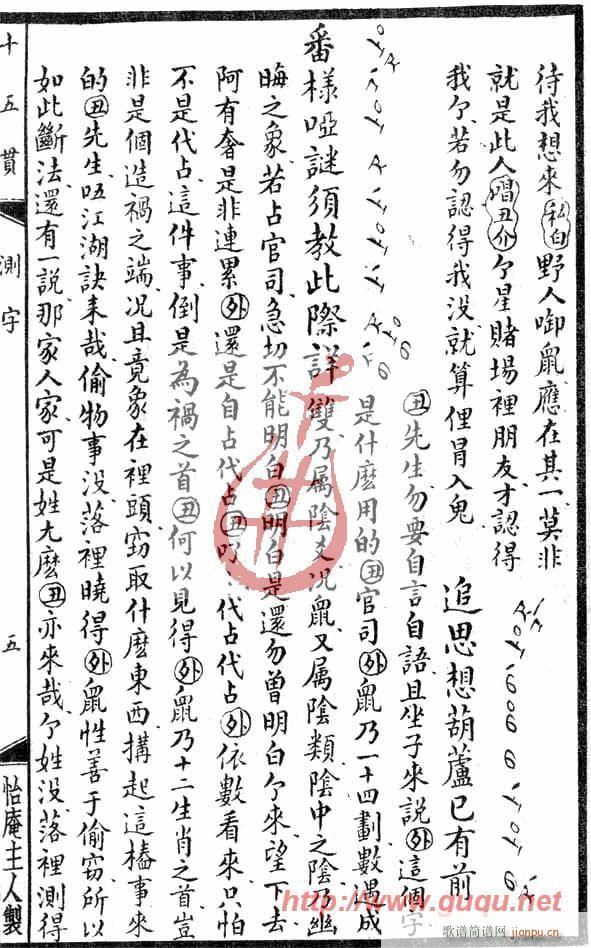 待我想來私白野人啣鼠應在其一莫非
就是此人唱丑介𠆧星賭場裡朋友才認得
我𠆧若勿認得我没就算俚冒入鬼
追思想葫蘆已有前
丑先生勿要自言自語且坐子來說外這個字
是什麽用的丑官司外鼠乃一十四劃數是成
番樣啞謎須教此際詳雙乃属陰爻况鼠又属陰類陰中之陰乃幽
晦之象若占官司急切不能明白丑明白是還勿曾明白𠆧來望下去
阿有奢是非連累外還是自占代占丑叮、代占代占外依數看來只怕
不是代占這件事倒是為禍之首丑何以見得外鼠乃十二生肖之首豈
非是個造禍之端况且竟象在裡頭窃取什麽東西搆起這樁事來
的丑先生唔江湖訣来哉偷物事没落裡曉得外鼠性善于偷窃所以
如此斷法還有一説那家人家可是姓尢麽丑亦來哉𠆧姓没落裡測得
十五貫
測字
五
怡庵主人製
http://www.guqu.net
歌谱简谱网
jianpu.cn